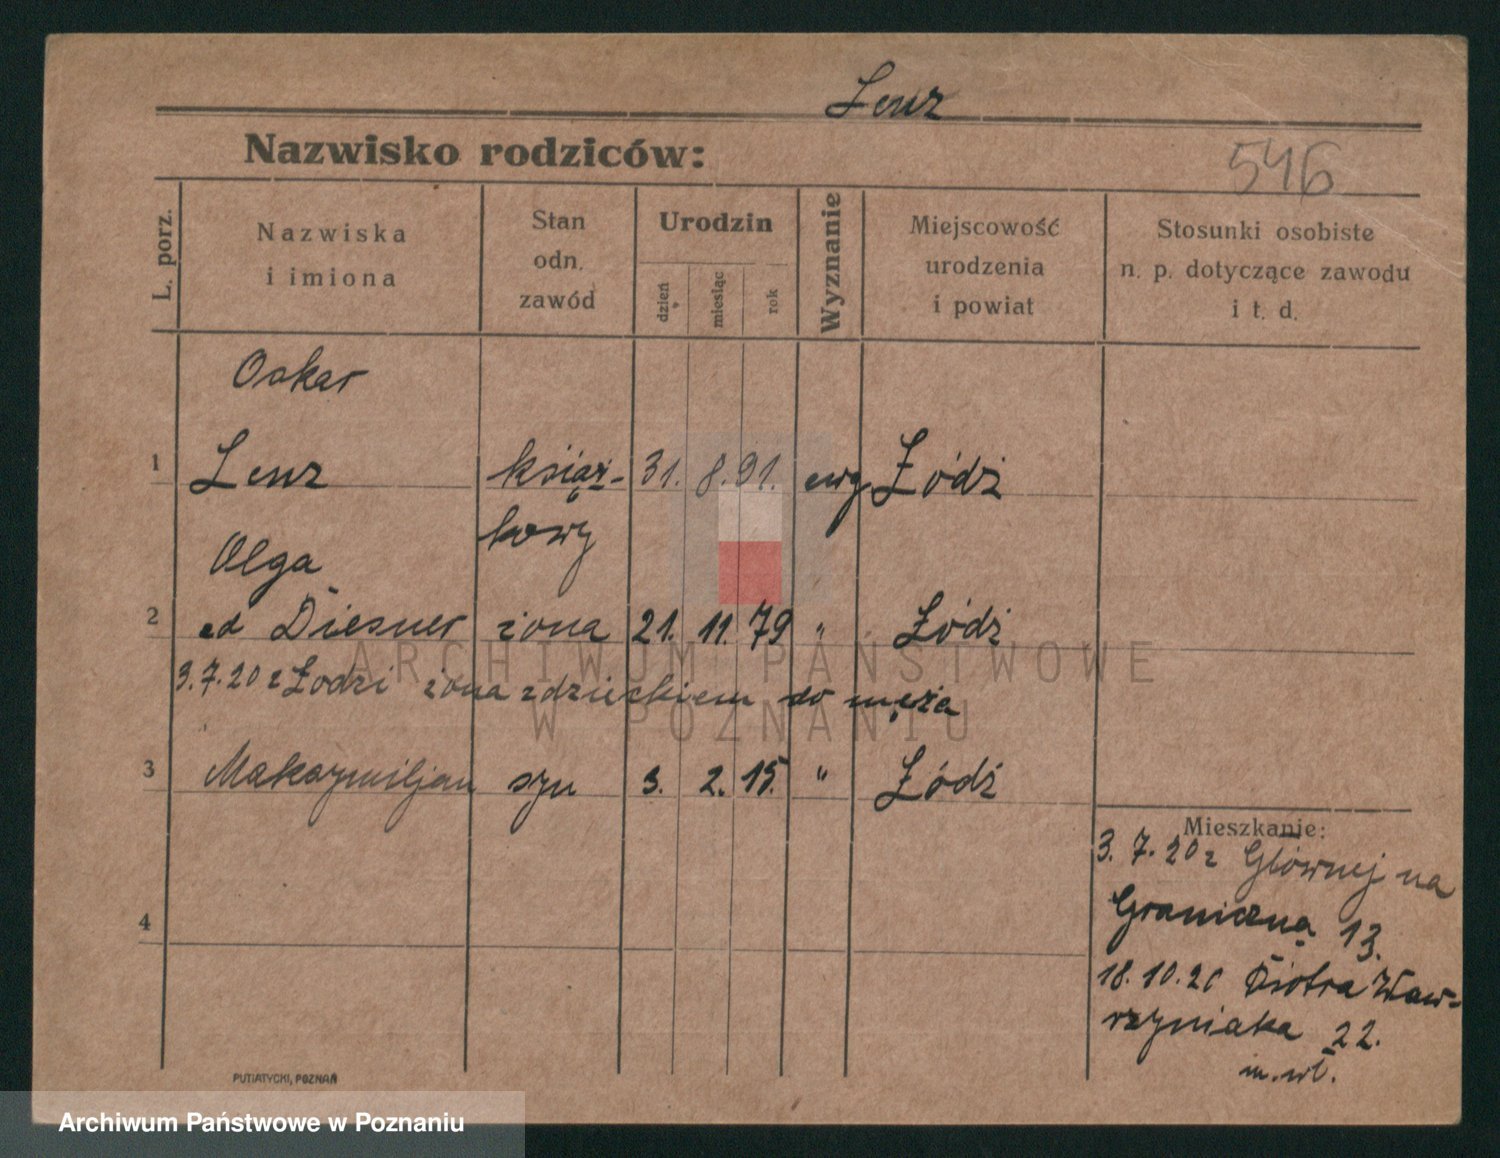 Lenz
Nazwisko rodziców:
546
L. porz.
Nazwiska
i imiona
Stan
odn.
zawód
Urodzin
dzień
miesiąc
rok
Wyznanie
Miejscowość
urodzenia
i powiat
Stosunki osobiste
n. p. dotyczące zawodu
i t. d.
Oskar
1 Lenz książ- 31. 8. 91. ewg Łódź
kowy
Olga
2 Diesner żona 21. 11. 79 " Łódź
3.7.20 z Łodzi żona z dzieckiem do męża
3 Maksymiljan syn 3. 2. 15. " Łódź
Mieszkanie:
3. 7. 20 z Głównej na
Graniczną 13.
4
18. 10. 20 Piotra Waw-
rzyniaka 22.
m. wł.
PUTIATYCKI, POZNAŃ
ARCHIWUM PAŃSTWOWE
W POZNANIU
Archiwum Państwowe w Poznaniu